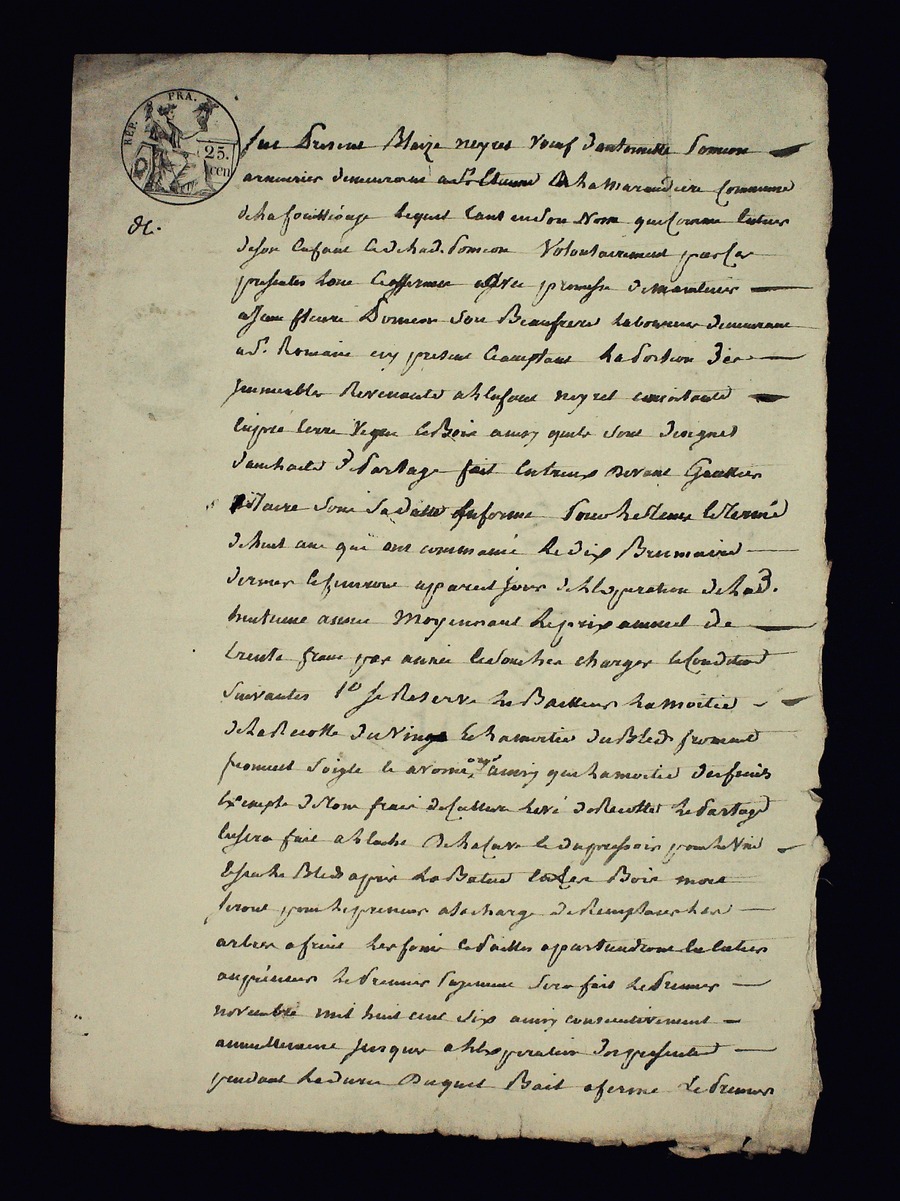 RÉP. FRA.
25.
cen
fut Present Blaize neyret Veuf d'antoinette Poncon
armurier demeurant a St Etienne & la maraudiere Commune
de la fouillouse lequel tant en son Nom que Comme tuteur
de son Enfant & de lad. Poncon Volontairement par Ces
presentes loue & afferme avec promesse de maintenir
a Jean fleuri Poncon son Beaufrere laboureur demeurant
a St. Romain icy present Camptant la Portion des
jmmeuble Revenante a l'enfant neyret consistante
En pré terre Vigne & Bois ainsy quils sont designés
dans l'acte de Partage fait Entreux devant Gaultier
notaire sous sa datte En forme Pour le tems & terme
de huit ans qui ont commancé le dix Brumaire
dernier & finiront a pareil jour de l'Expiration de lad.
huitieme année Moyennant le prix annuel de
trente franc par année & sous les charges & Conditions
suivantes 1º Se Reserve le Bailleur la moitié
de la Recolte du Vin & la moitié du Bled froment
froment Seigle & avoine, orge ainsy que la moitié des fruits
Exempte de tous frais de Culture levé de Recolte le Partage
En sera fait a l'ache de la Cave & du pressoir pour le Vin
Et pour le Bled apres la Batue Les Bois mort
seront pour le preneur a la charge de Remplacer les
arbres a fruit les foins & Pailles appartiendront En Entier
au preneur le Premier Payement sera fait le Premier
novembre mil huit cent six ainsy consecutivement
annuellement jusques a l'Expiration des presentes
pendant la durée duquel Bail a ferme le Preneur
dl.